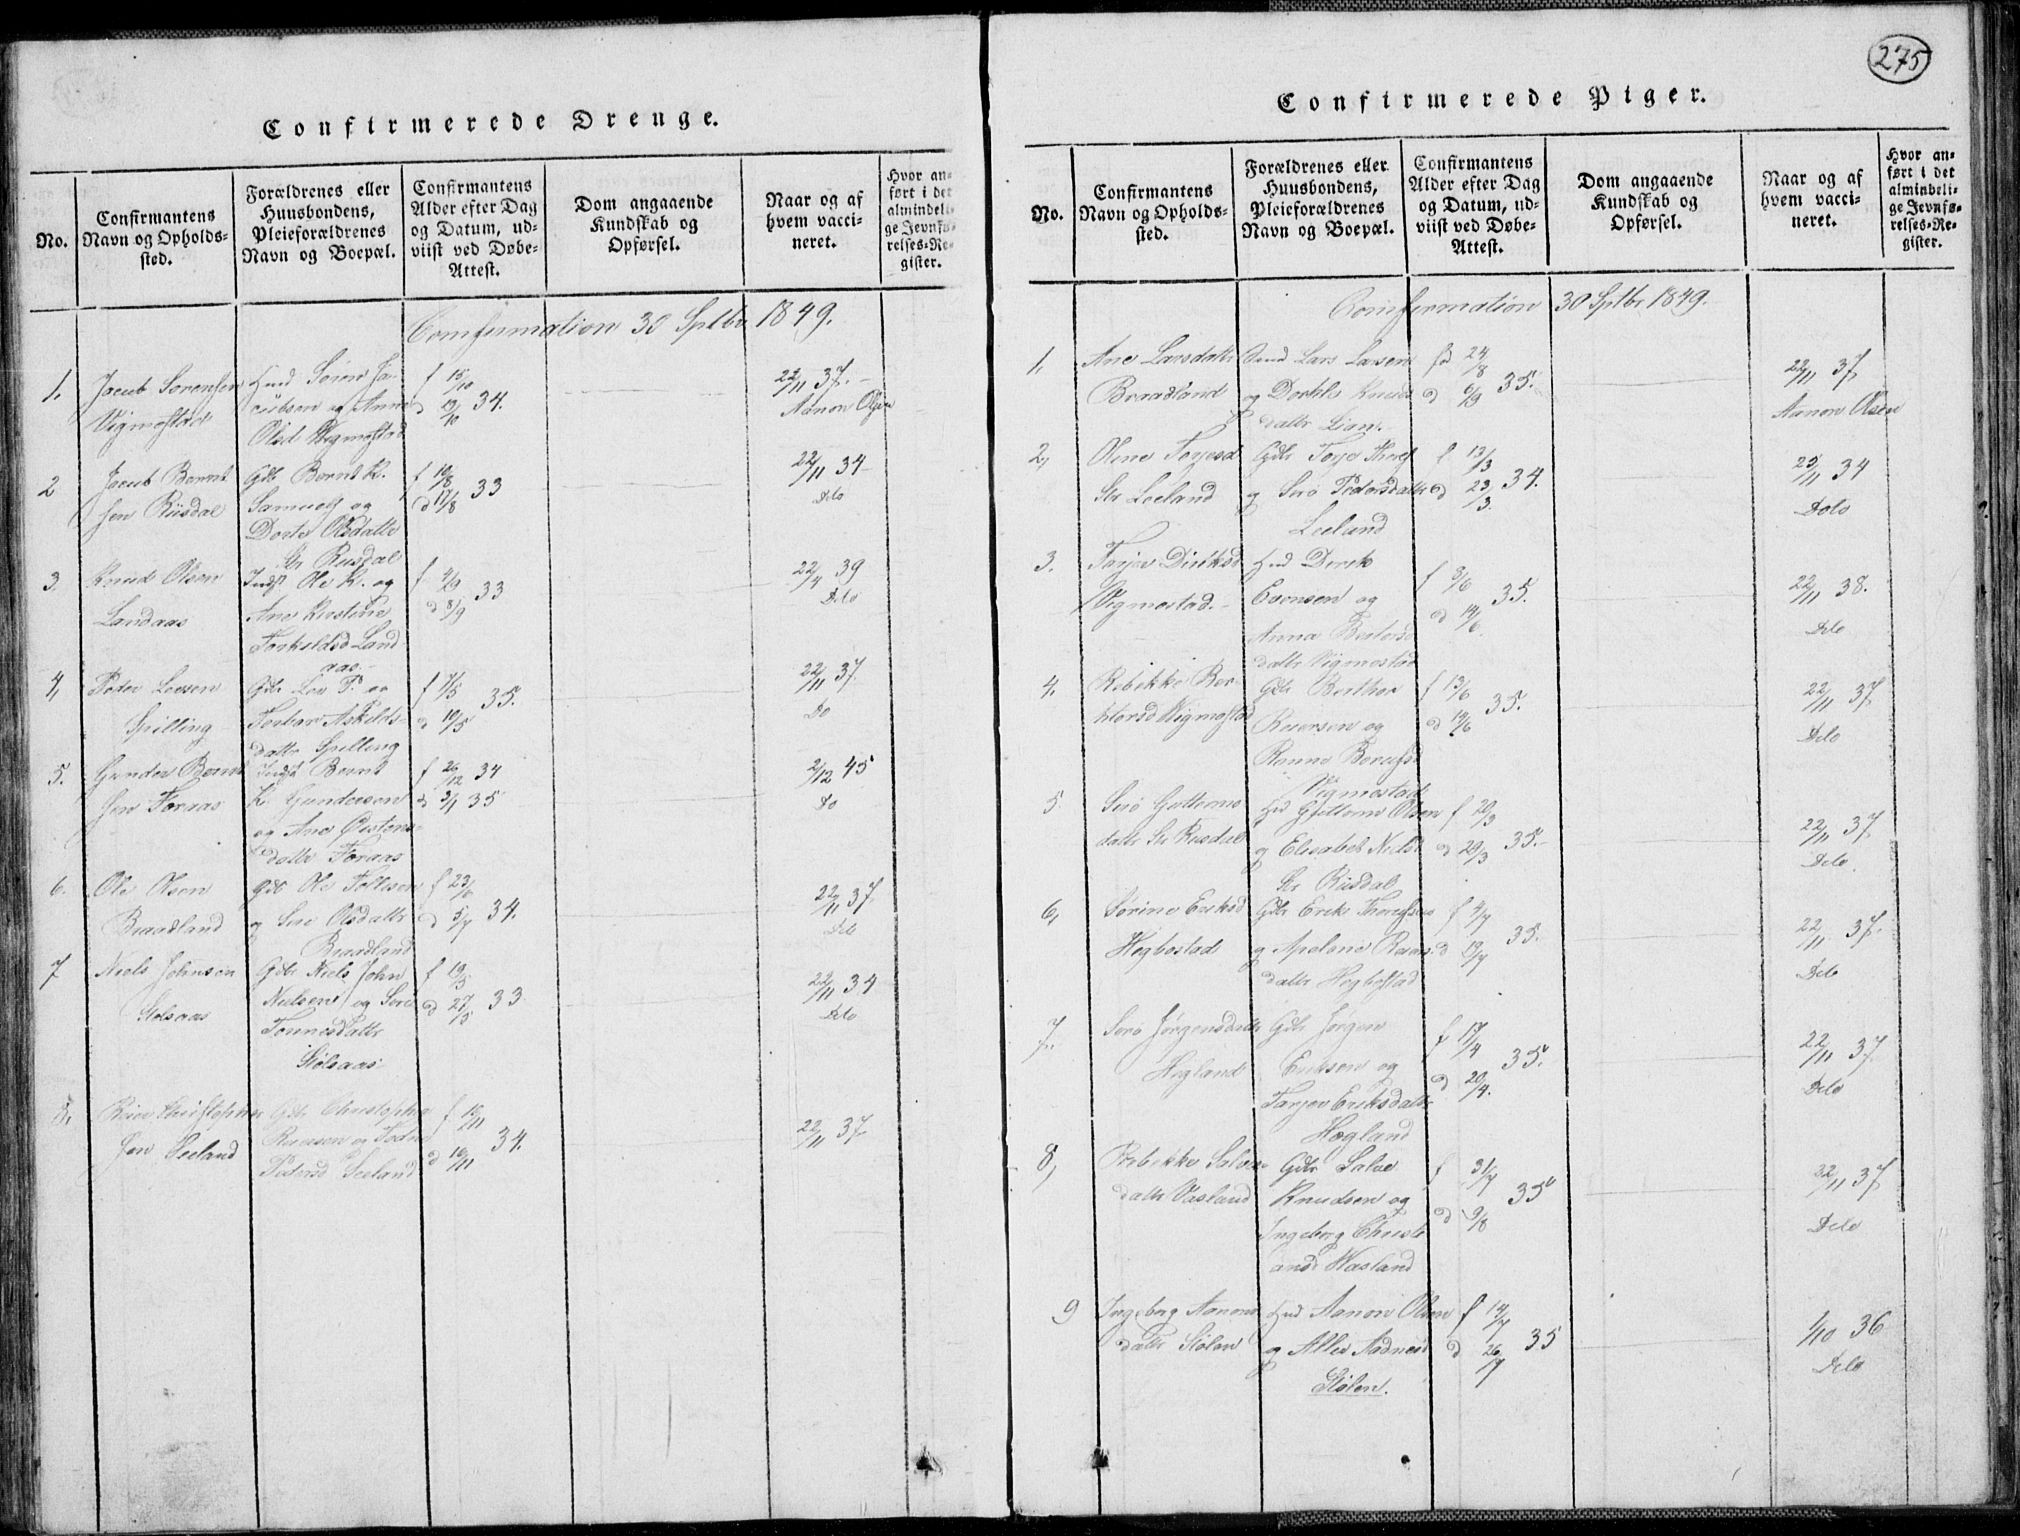 Confirmerede Drenge.
No.
Confirmantens
Navn og Opholds-
sted.
Forældrenes eller
Huusbondens,
Pleieforældrenes
Navn og Boepæl.
Confirmantens
Alder efter Dag
og Datum, ud-
viist ved Døbe-
Attest.
Dom angaaende
Kundskab og
Opførsel.
Naar og af
hvem vacci-
neret.
Hvor an-
ført i det
almindeli-
ge Jevnfø-
relses-Re-
gister.
Comfirmation 30 Sptbr 1849.
1. Jacob Sørensen
Vigmostad
Søren Ja-
cobsen og Anne
Olsd Wigmostad
f 15/10
d 19/10 34.
22/11 37.
Aanon Olsen
2 Jacob Bernt
sen Riisdal
Gdb Bernt K.
Samuels og
Dorte Olsdatter
Str Riisdal
f 10/8
d 17/8 33
22/11 34
Dito
3 Knud Olsen
Landaas
Indst Ole K. og
Ane Kirstine
Torkeldsd Land
aas.
f 4/9
d 8/9 33
22/4 39
Dito
4, Peder Leesen
Spilling
Gdb Lee P. og
Torbor Askilds-
datter Spilling
f 7/5
d 10/5 35.
22/11 37.
Do
5. Gunder Bernt
sen Foraas
Indst Bernt
K. Gundersen
og Ane Øistens-
datter Foraas
f 26/12 34
d 3/1 35
2/12 45
Do
6. Ole Olsen
Braadland
Gdb Ole Tollesen
og Siri Olsdatter
Braadland
f 23/6
d 5/7 34.
22/11 37.
Dito
7 Niels Johnsen
Stølsaas
Gdb Niels John
Nielsen og Siri
Tønnesdatter
Stølsaas
f 19/5
d 27/5 33
22/11 34
Dito
8, Reier Christopher
sen Leeland
Gdb Christopher
Reiersen og
Pedersd Leeland
f 10/11
d 16/11 34.
22/11 37.
275
Confirmerede Piger.
No.
Confirmantens
Navn og Opholds-
sted.
Forældrenes eller
Huusbondens,
Pleieforældrenes
Navn og Boepæl.
Confirmantens
Alder efter Dag
og Datum, ud-
viist ved Døbe-
Attest.
Dom angaaende
Kundskab og
Opførsel.
Naar og af
hvem vacci-
neret.
Hvor an-
ført i det
almindeli-
ge Jevnfø-
relses-Re-
gister.
Comfirmation 30 Sptbr 1849.
1, Ane Larsdatter
Braadland
Lars Larsen
og Dorthe Knuds
datter Lian.
fd 24/8
d 6/9 35.
22/11 37,
Aanon Olsen
2, Oline Torjesd
Str Leeland
Gdb Torje Thores
og Siri Pedersdatter
Leeland
f 13/3
d 23/3 34.
23/11 34
Dito
3. Torjer Diriksd
Vigmostad.
Hmd Dirik
Evensen og
Anna Berters
datter Vigmostad
f 3/6
d 14/6 35.
22/11 38.
Dito
4. Rebekke Ber-
thorsd Wigmostad
Gdb Berthor
Reiersen og
Vigmostad
f 13/6
d 19/6 35.
22/11 37
Dito
5 Siri Guttorms
datter Str Riisdal
Guttorm Olsen
og Elisabet Nielsd
Str Riisdal
f 20/3
d 29/3 35.
22/11 37
Dito
6, Sørine Eriksd
Hegbostad
Gdb Erik Thorsen
og Apolone Reiers
datter Hegbostad
f 4/7
d 13/7 35.
22/11 37.
Dito
7. Siri Jørgensdatter
Høgland
Gdb Jørgen
Eriksen og
Torjer Eriksdatter
Høgland
f 17/4
d 20/4. 35.
22/11 37
Dito
8, Rebekke Salves
datter Vasland
Gdb Salve
Knudsen og
Ingeborg Christi
ansd Wasland
f 31/7
d 9/8 35
22/11 37
Dito
9 Ingeborg Aanons
datter Stølen
Aanon Olsen
og Allis Aadnesd
Stølen.
f 14/7
d 26/7 35
1/10 36
Dito